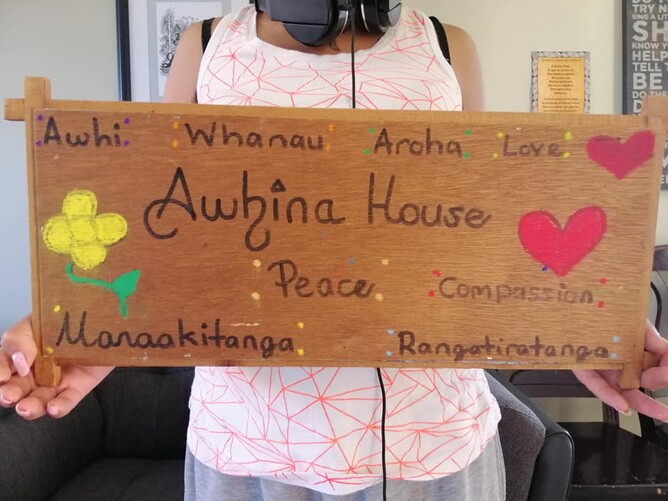 Awhi Whanau Aroha Love
Awhina House
Peace Compassion
Manaakitanga Rangatiratanga
SH
KNOW
HELP
TELL T
BE